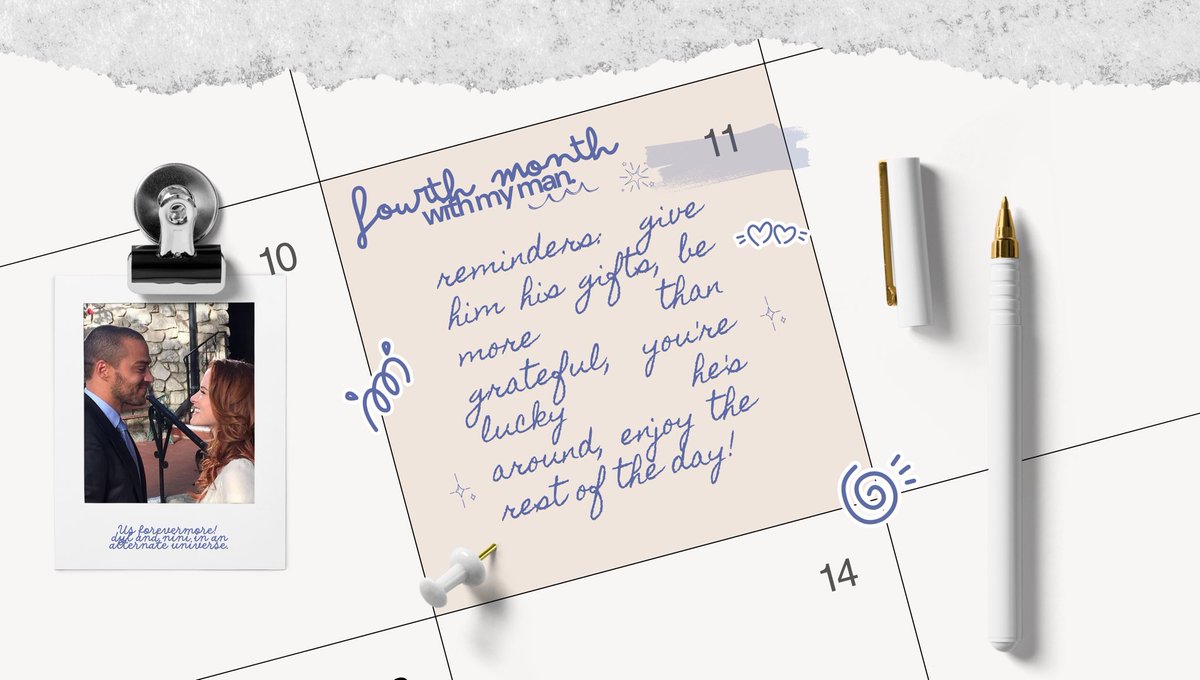 fourth month
with my man.
11
reminders: give
him his gifts, be
more than
grateful, you're
lucky he's
around, enjoy the
rest of the day!
10
Us forevermore!
dyl and nini in an
alternate universe.
14